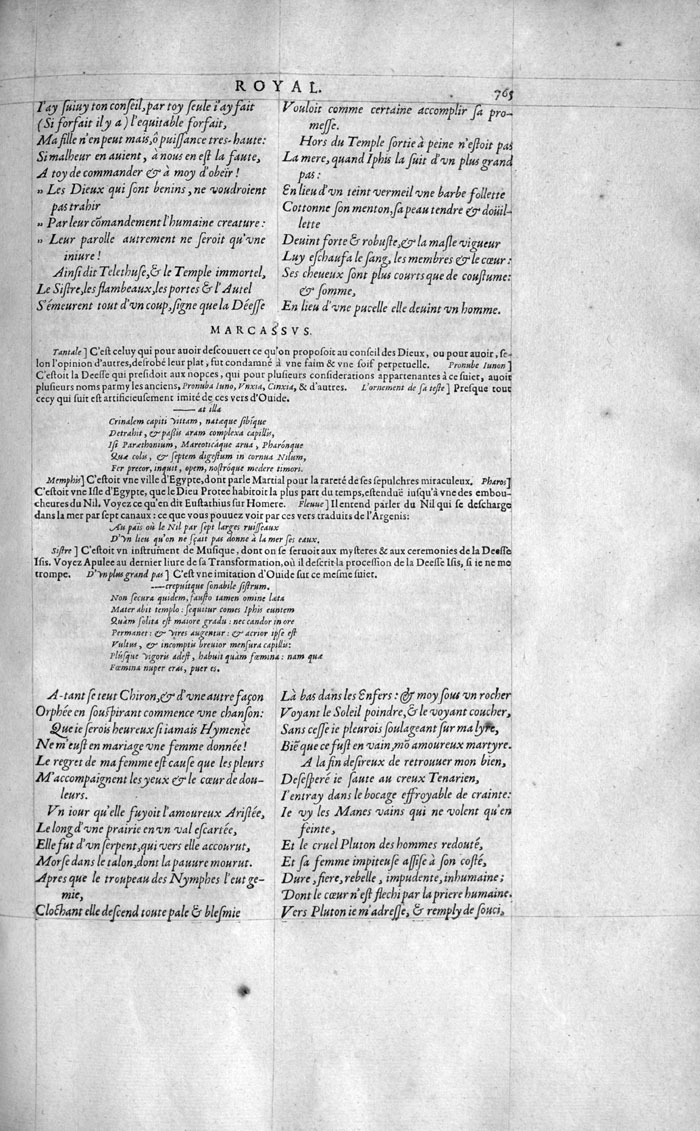 ROYAL.
765
I'ay suiuy ton conseil, par toy seule i'ay fait
(Si forfait il y a) l'equitable forfait,
Ma fille n'en peut mais, ô puissance tres-haute:
Si malheur en auient, à nous en est la faute,
A toy de commander & à moy d'obeir!
„ Les Dieux qui sont benins, ne voudroient
pas trahir
„ Par leur cōmandement l'humaine creature:
„ Leur parolle autrement ne seroit qu'vne
iniure!
Ainsi dit Telethuse, & le Temple immortel,
Le Sistre, les flambeaux, les portes & l'Autel
S'émeurent tout d'vn coup, signe que la Déesse
Vouloit comme certaine accomplir sa pro-
messe.
Hors du Temple sortie à peine n'estoit pas
La mere, quand Iphis la suit d'vn plus grand
pas:
En lieu d'vn teint vermeil vne barbe follette
Cottonne son menton, sa peau tendre & doüil-
lette
Deuint forte & robuste, & la masle vigueur
Luy eschaufa le sang, les membres & le cœur:
Ses cheueux sont plus courts que de coustume:
& somme,
En lieu d'vne pucelle elle deuint vn homme.
MARCASSVS.
Tantale] C'est celuy qui pour auoir descouuert ce qu'on proposoit au conseil des Dieux, ou pour auoir, se-
lon l'opinion d'autres, desrobé leur plat, fut condamné à vne faim & vne soif perpetuelle. Pronube Iunon]
C'estoit la Deesse qui presidoit aux nopces, qui pour plusieurs considerations appartenantes à ce suiet, auoit
plusieurs noms parmy les anciens, Pronuba Iuno, Vnxia, Cinxia, & d'autres. L'ornement de sa teste] Presque tout
cecy qui suit est artificieusement imité de ces vers d'Ouide.
—— at illa
Crinalem capiti vittam, natæque sibíque
Detrahit, & passis aram complexa capillis,
Isi Parætonium, Mareoticáque arua, Pharónque
Quæ colis, & septem digestum in cornua Nilum,
Fer precor, inquit, opem, nostróque medere timori.
Memphis] C'estoit vne ville d'Egypte, dont parle Martial pour la rareté de ses sepulchres miraculeux. Pharos]
C'estoit vne Isle d'Egypte, que le Dieu Protee habitoit la plus part du temps, estenduë iusqu'à vne des embou-
cheures du Nil. Voyez ce qu'en dit Eustathius sur Homere. Fleuue] Il entend parler du Nil qui se descharge
dans la mer par sept canaux: ce que vous pouuez voir par ces vers traduits de l'Argenis:
Au païs où le Nil par sept larges ruisseaux
D'vn lieu qu'on ne sçait pas donne à la mer ses eaux.
Sistre] C'estoit vn instrument de Musique, dont on se seruoit aux mysteres & aux ceremonies de la Deesse
Isis. Voyez Apulee au dernier liure de sa Transformation, où il descrit la procession de la Deesse Isis, si ie ne me
trompe. D'vn plus grand pas] C'est vne imitation d'Ouide sur ce mesme suiet.
——crepuitque sonabile sistrum.
Non secura quidem, fausto tamen omine læta
Mater abit templo: sequitur comes Iphis euntem
Quàm solita est maiore gradu: nec candor in ore
Permanet: & vires augentur: & acrior ipse est
Vultus, & incomptis breuior mensura capillis:
Plúsque vigoris adest, habuit quàm fœmina: nam quæ
Fœmina nuper eras, puer es.
A-tant se teut Chiron, & d'vne autre façon
Orphée en souspirant commence vne chanson:
Que ie serois heureux si iamais Hymenée
Ne m'eust en mariage vne femme donnée!
Le regret de ma femme est cause que les pleurs
M'accompaignent les yeux & le cœur de dou-
leurs.
Vn iour qu'elle fuyoit l'amoureux Aristée,
Le long d'vne prairie en vn val escartée,
Elle fut d'vn serpent, qui vers elle accourut,
Morse dans le talon, dont la pauure mourut.
Apres que le troupeau des Nymphes l'eut ge-
mie,
Clochant elle descend toute pale & blesmie
Là bas dans les Enfers: & moy sous vn rocher
Voyant le Soleil poindre, & le voyant coucher,
Sans cesse ie pleurois soulageant sur ma lyre,
Biē que ce fust en vain, mō amoureux martyre.
A la fin desireux de retrouuer mon bien,
Desesperé ie saute au creux Tenarien,
I'entray dans le bocage effroyable de crainte:
Ie vy les Manes vains qui ne volent qu'en
feinte,
Et le cruel Pluton des hommes redouté,
Et sa femme impiteuse assise à son costé,
Dure, fiere, rebelle, impudente, inhumaine;
Dont le cœur n'est flechi par la priere humaine.
Vers Pluton ie m'adresse, & remply de souci,